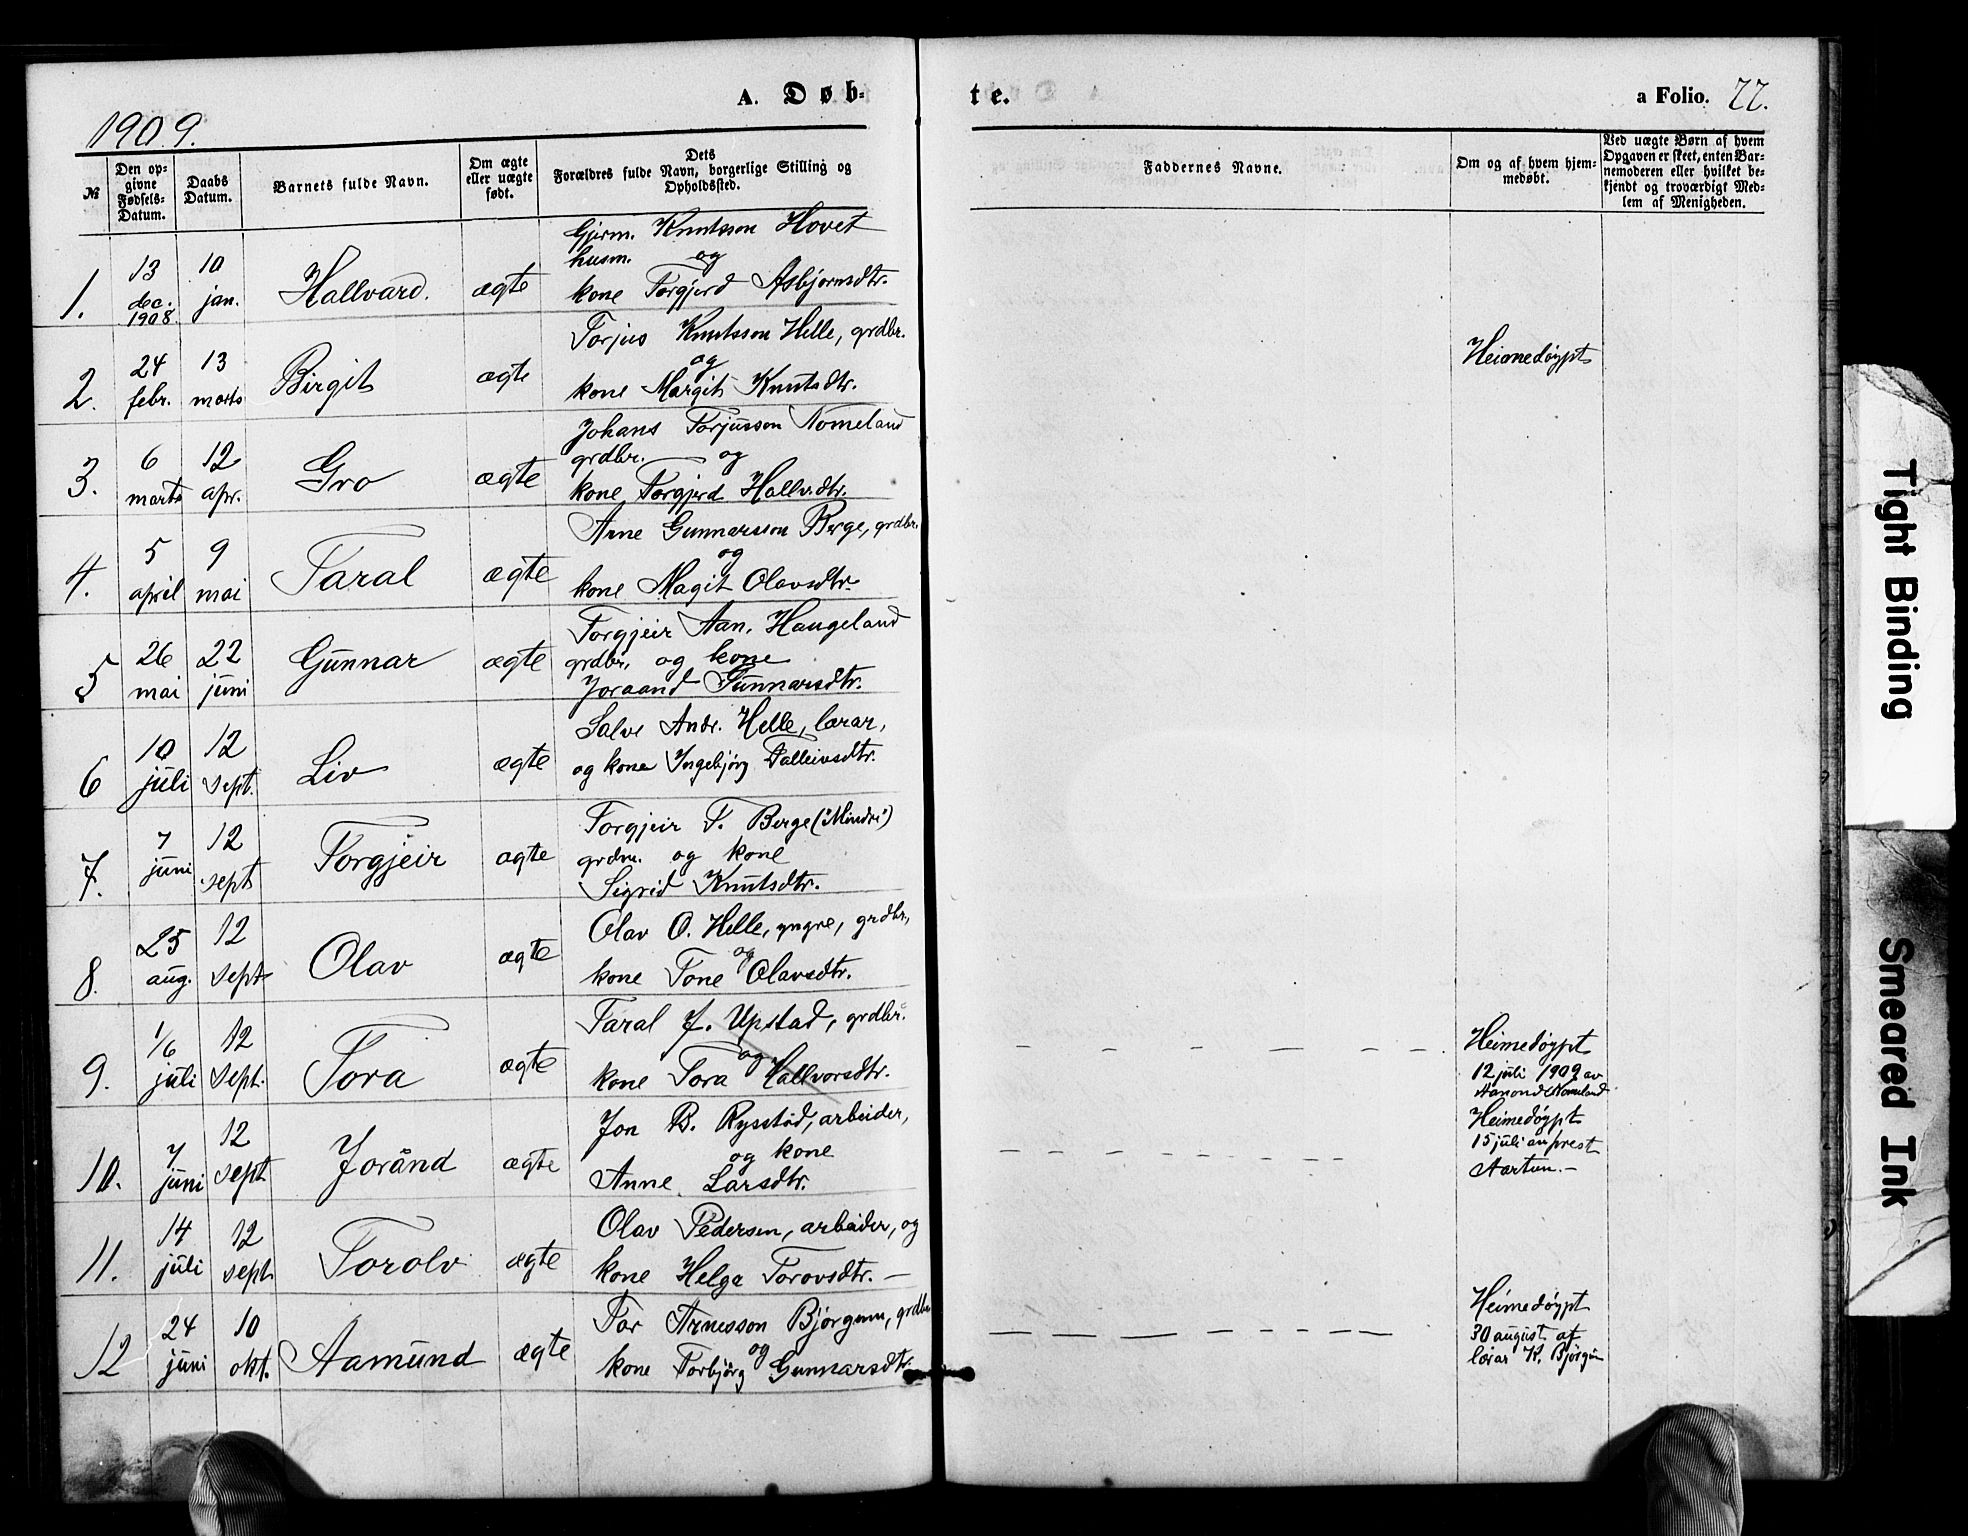 A. Døb-
te.
a Folio. 77.
1909.
№
Den op-
givne
Fødsels-
Datum.
Daabs
Datum.
Barnets fulde Navn.
Om ægte
eller uægte
født.
Dets
Forældres fulde Navn, borgerlige Stilling og
Opholdssted.
Faddernes Navne.
Om og af hvem hjem-
medøbt.
Ved uægte Børn af hvem
Opgaven er skeet, enten Bar-
nemoderen eller hvilket be-
kjendt og troværdigt Med-
lem af Menigheden.
1.
13
dec.
1908
10
jan.
Hallvard.
ægte
Gjerm. Knutsson Hovet
husm. og
kone Torgjerd Asbjørnsdtr.
2.
24
febr.
13
marts
Birgit
ægte
Torjus Knutsson Helle, grdbr.
og
kone Margit Knutsdtr.
Heimedøypt
3.
6
marts
12
apr.
Gro
ægte
Johans Torjusson Nomeland
grdbr. og
kone Torgjerd Hallv.dtr.
4.
5
april
9
mai
Taral
ægte
Arne Gunnarsson Berge, grdbr.
og
kone Magit Olavsdtr.
5
26
mai
22
juni
Gunnar
ægte
Torgjeir Aan. Haugeland
grdbr. og kone
Joraand Gunnarsdtr.
6
10
juli
12
sept.
Liv
ægte
Salve Andr. Helle, lærar,
og kone Ingebjørg Talleivsdtr.
7.
7
juni
12
sept
Torgjeir
ægte
Torgjeir T. Berge ("Mindre")
grdm. og kone
Sigrid Knutsdtr.
8.
25
aug.
12
sept
Olav
ægte
Olav O. Helle, yngre, grdbr,
og
kone Tone Olavsdtr.
9.
1/6
juli
12
sept.
Tora
ægte
Taral J. Upstad, grdbr.
og
kone Tora Hallvorsdtr.
Heimedøypt
12 juli 1909 av
Aanond Nomeland
10.
7
juni
12
sept
Joránd
ægte
Jon B. Rysstad, arbeider,
og kone
Anne Larsdtr.
Heimedøypt
15 juli an prest
Aartun. -
11.
14
juli
12
sept
Torolv
ægte
Olav Pedersen, arbeider, og
kone Helga Torovsdtr. -
12
24
juni
10
okt.
Aamund
ægte
Tor Arnesson Bjørgum, grdbr
og
kone Torbjørg Gunnarsdtr.
Heimedøypt
30 august af
lærar K. Bjørgum
Tight Binding
Smeared Ink